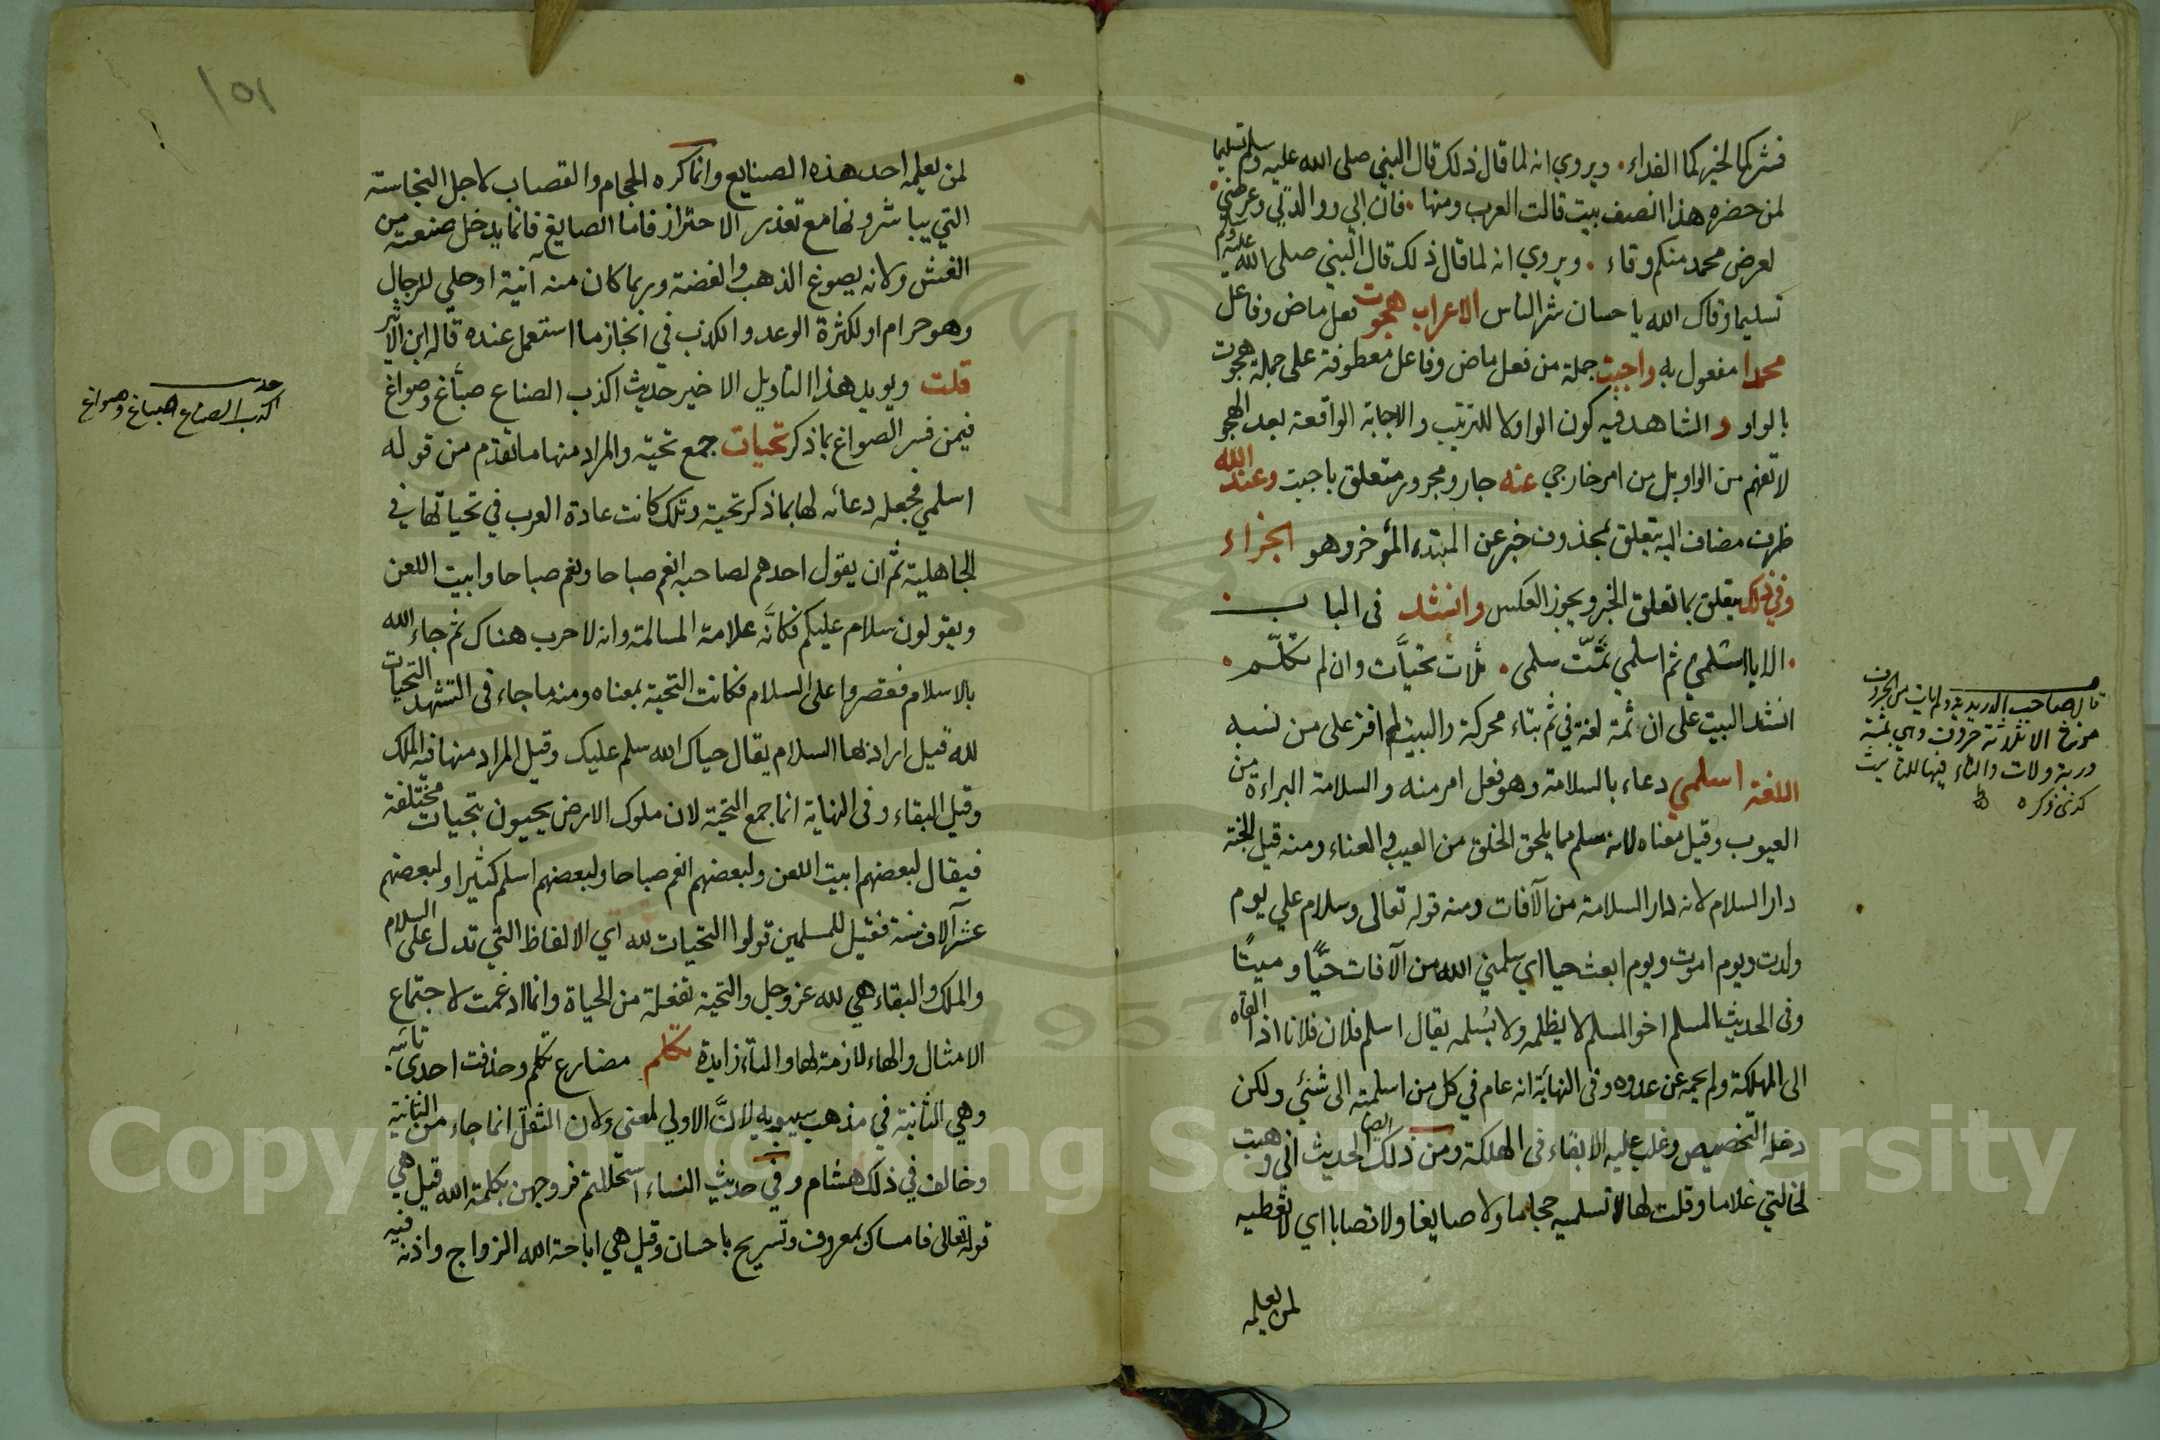 فشركما لخيركما الفداء . ويروي انه لما قال ذلك قال النبي صلى الله عليه وسلم تسليما
لمن حضره هذا انصف بيت قالت العرب ومنها . فان ابي ووالدتي وعرضي .
لعرض محمد منكم وقاء . ويروي انه لما قال ذلك قال النبي صلى الله عليه وسلم
تسليما وقاك الله يا حسان شر الناس الاعراب هجوت فعل ماض وفاعل
محمدا مفعول به واجبت جملة من فعل ماض وفاعل معطوفة على جملة هجوت
بالواو والشاهد فيه كون الواو لا للترتيب والاجابة الواقعة بعد الهجو
لا تفهم من الواو بل من امر خارجي عنه جار ومجرور متعلق باجبت وعند الله
ظرف مضاف اليه يتعلق بمحذوف خبر عن المبتدء المؤخر وهو الجزاء
وفي ذلك يتعلق بما تعلق الخبر ويجوز العكس وانشد فى الباب
. الا يا اسلمي ثم اسلمي ثمّت سلمى . ثلاث تحيّات وان لم تكلّم .
انشد البيت على ان ثمة لغة في ثم بتاء محركة والبيت لم اقز على من نسبه
اللغة اسلمي دعاء بالسلامة وهو فعل امر منه والسلامة البراءة من
العيوب وقيل معناه لانه سلم مما يلحق الخلق من العيب والعناء ومنه قيل للجنة
دار السلام لانه دار السلامة من الآفات ومنه قوله تعالى وسلام علي يوم
ولدت ويوم اموت ويوم ابعث حيا اي سلمني الله من الآفات حيًّا وميتًا
وفى الحديث المسلم اخو المسلم لا يظلمه ولا يسلمه يقال اسلم فلان فلانا اذا القاه
الى المهلكة ولم يحمه عن عدوه وفى النهاية انه عام في كل من اسلمته الى شئي ولكن
دخله التخصيص وغلب عليه الالقاء فى الهلكة ومن ذلك ايضا الحديث اني وهبت
لخالتي غلاما وقلت لها لا تسلميه حجاما ولا صايغا ولا قصابا اي لا تعطيه
لمن يعلمه
قال صاحب الدريدية ولم يات من الحروف
مؤنث الا ثلاثة حروف وهي ثمة
وربة ولات والتاء فيها للتأنيث
كذى ذكره
١٥١
لمن يعلمه احد هذه الصنايع وانما كره الحجام والقصاب لاجل النجاسة
التي يباشرونها مع تعذر الاحتراز فاما الصايغ فانما يدخل صنعته من
الغش ولانه يصوغ الذهب والفضة وربما كان منه آنية او حلي للرجال
وهو حرام او لكثرة الوعد والكذب في انجاز ما استعمل عنده قاله ابن الاثير
قلت ويويد هذا التاويل الاخير حديث اكذب الصناع صبّاغ وصواغ
فيمن فسر الصواغ بما ذكر تحيات جمع تحية والمراد منها ما تقدم من قوله
اسلمي فجعله دعائه لها بما ذكر تحية وتلك كانت عادة العرب في تحياتها في
الجاهلية ثم ان يقول احدهم لصاحبه انعم صباحا وانعم صباحا وابيت اللعن
ويقولون سلام عليكم فكانّه علامة المسالمة وانه لا حرب هناك ثم جاء الله
بالاسلام فقصروا على السلام فكانت التحية بمعناه ومنه ما جاء فى التشهد التحيات
لله قيل اراد بها السلام يقال حياك الله سلم عليك وقيل المراد منها فيه الملك
وقيل البقاء وفى النهاية انما جمع التحية لان ملوك الارض يحيون بتحيات مختلفة
فيقال لبعضهم ابيت اللعن ولبعضهم انعم صباحا ولبعضهم اسلم كثيرا ولبعضهم
عش آلاف سنة فقيل للمسلمين قولوا التحيات لله اي الالفاظ التي تدل على السلام
والملك والبقاء هي لله عز وجل والتحية تفعلة من الحياة وانما ادغمت لاجتماع
الامثال والهاء لازمة لها والتاء زايدة تكلم مضارع تكلم وحذفت احدى تائيه
وهي الثانية في مذهب سيبويه لانّ الاولي لمعنى ولان الثقل انما جاء من الثانية
وخالف في ذلك هشام وفي حديث النساء استحللتم فروجهن بكلمة الله قيل هي
قوله تعالى فامساك بمعروف وتسريح باحسان وقيل هي اباحة الله الزواج واذنه فيه
حديث
اكذب الصناع الصباغ وصواغ
1957
Copyright © King Saud University